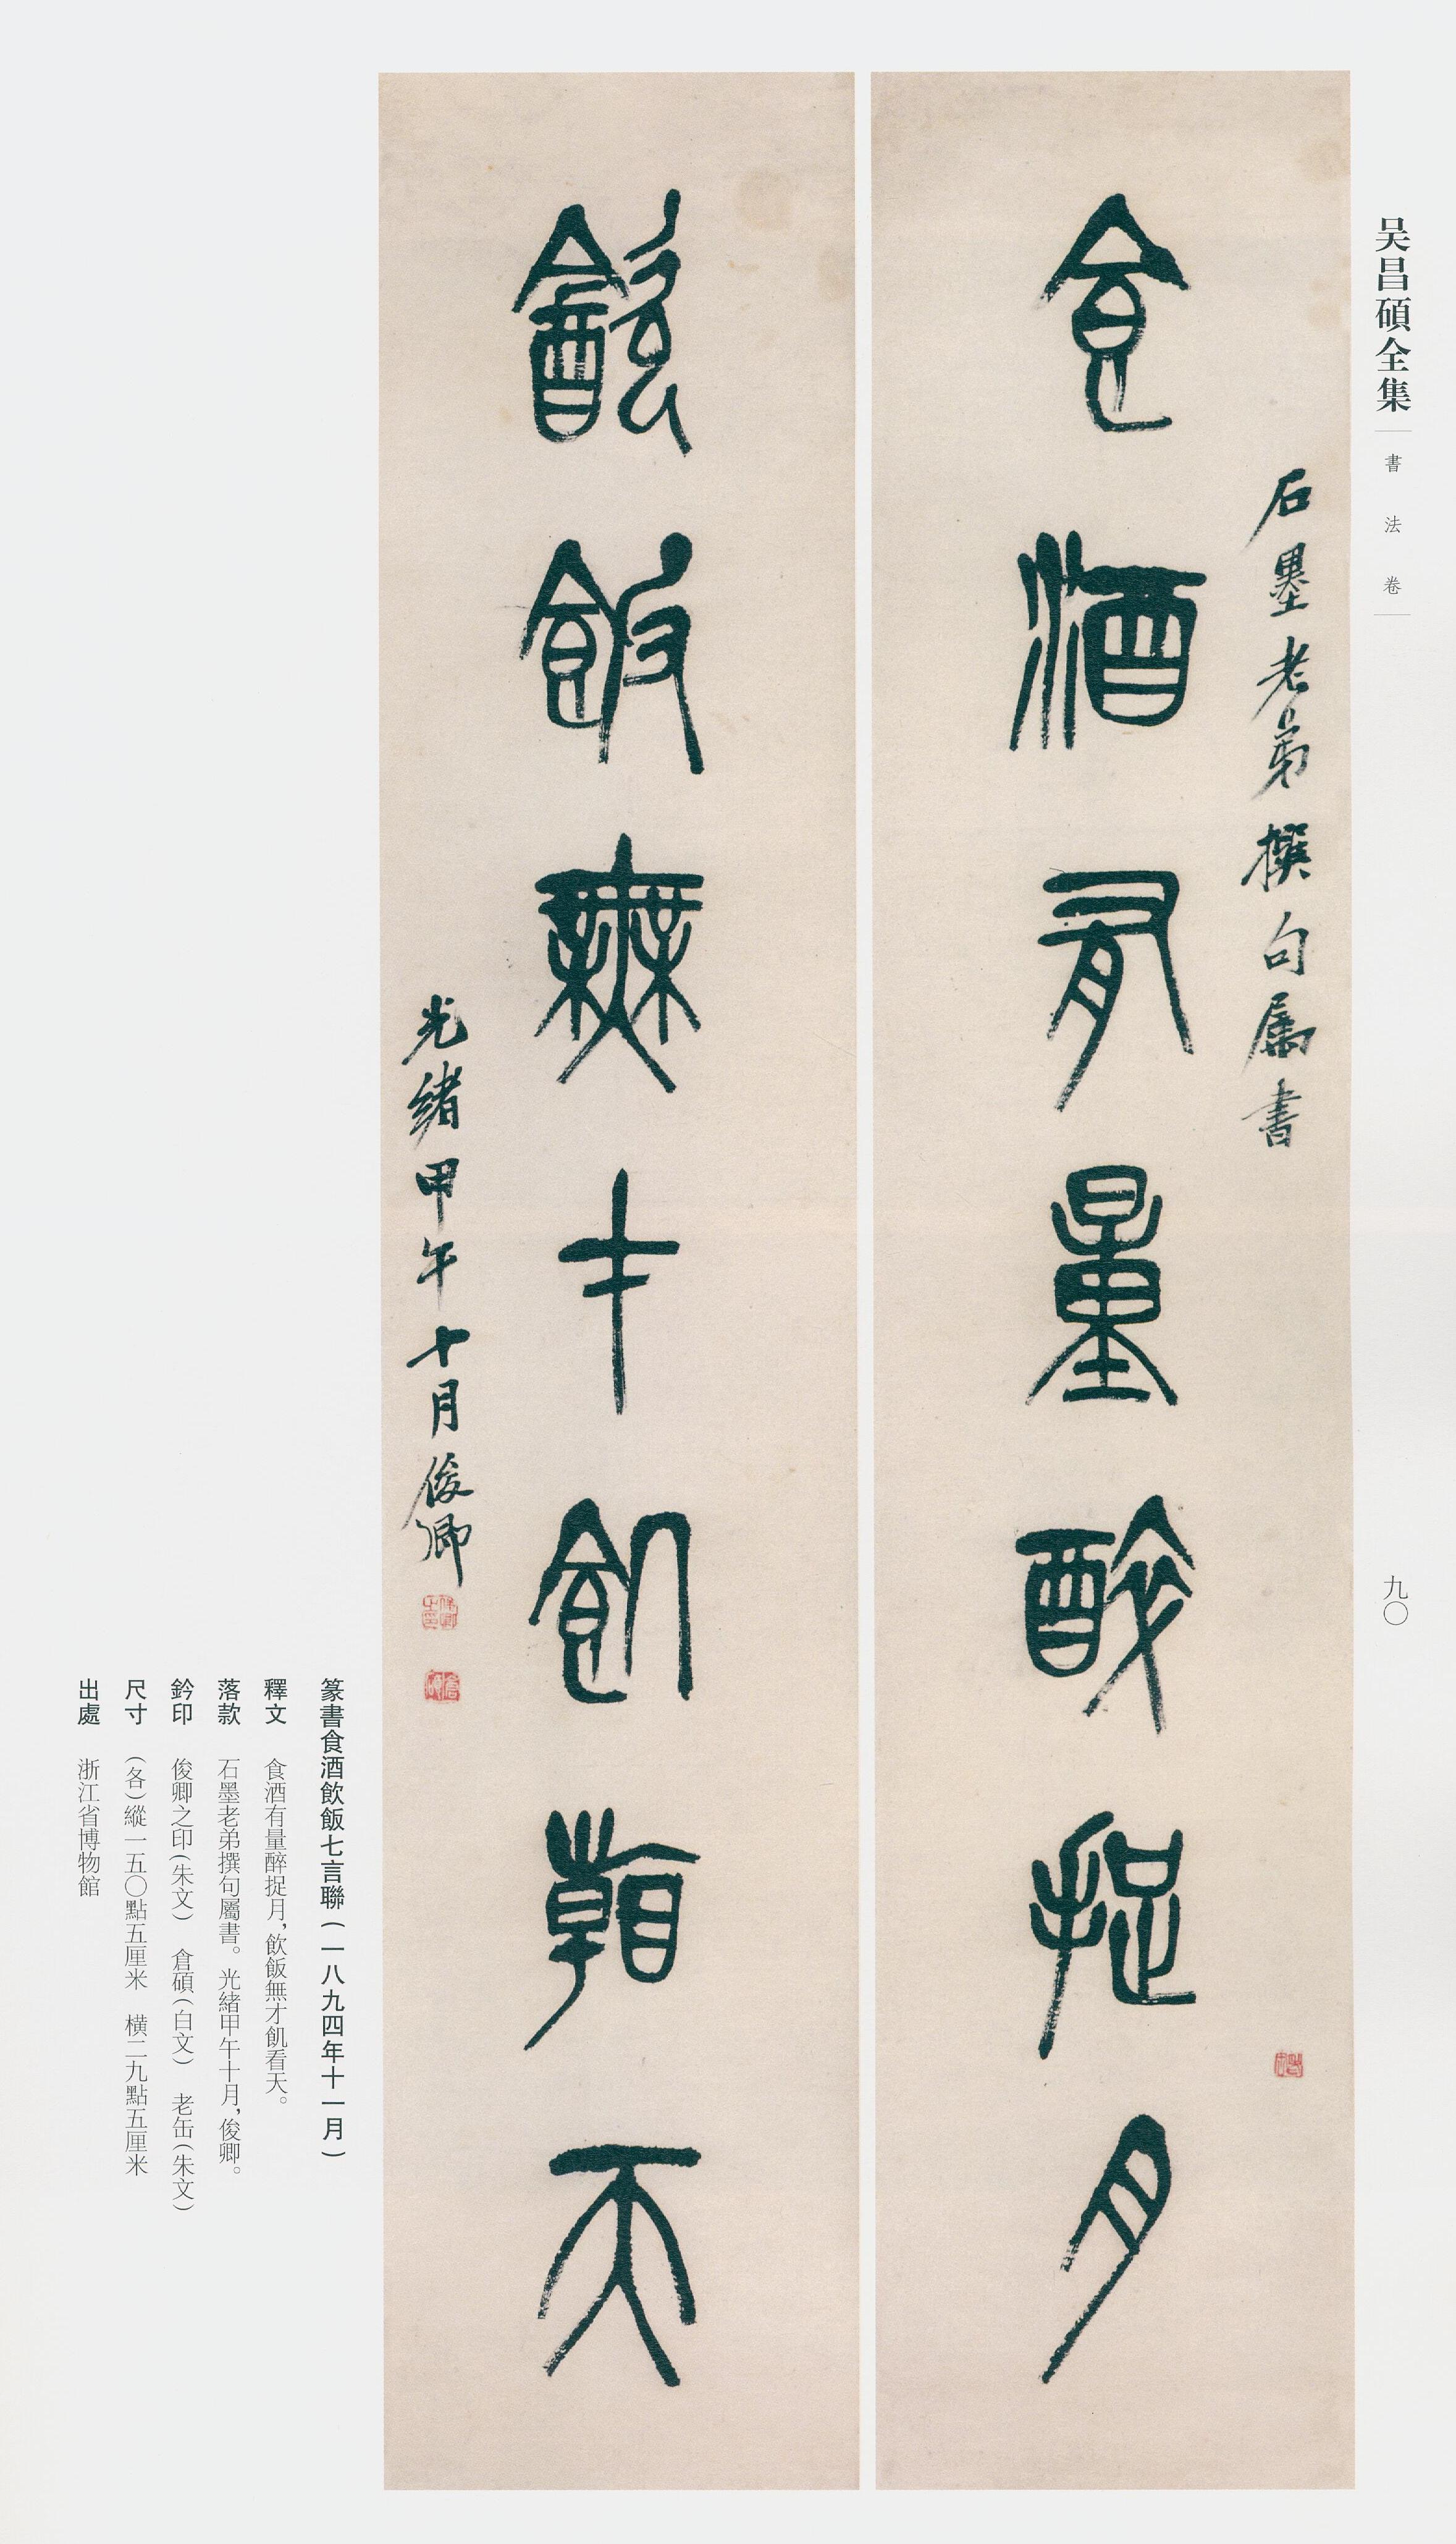 吴昌碩全集
書法卷
九〇
石墨老弟撰句屬書
食酒有量醉捉月
飲飯無才飢看天
光緒甲午十月俊卿
俊卿之印
倉碩
老缶
篆書食酒飲飯七言聯（一八九四年十一月）
釋文　食酒有量醉捉月，飲飯無才飢看天。
落款　石墨老弟撰句屬書。光緒甲午十月，俊卿。
鈐印　俊卿之印（朱文）　倉碩（白文）　老缶（朱文）
尺寸　（各）縱一五〇點五厘米　橫二九點五厘米
出處　浙江省博物館